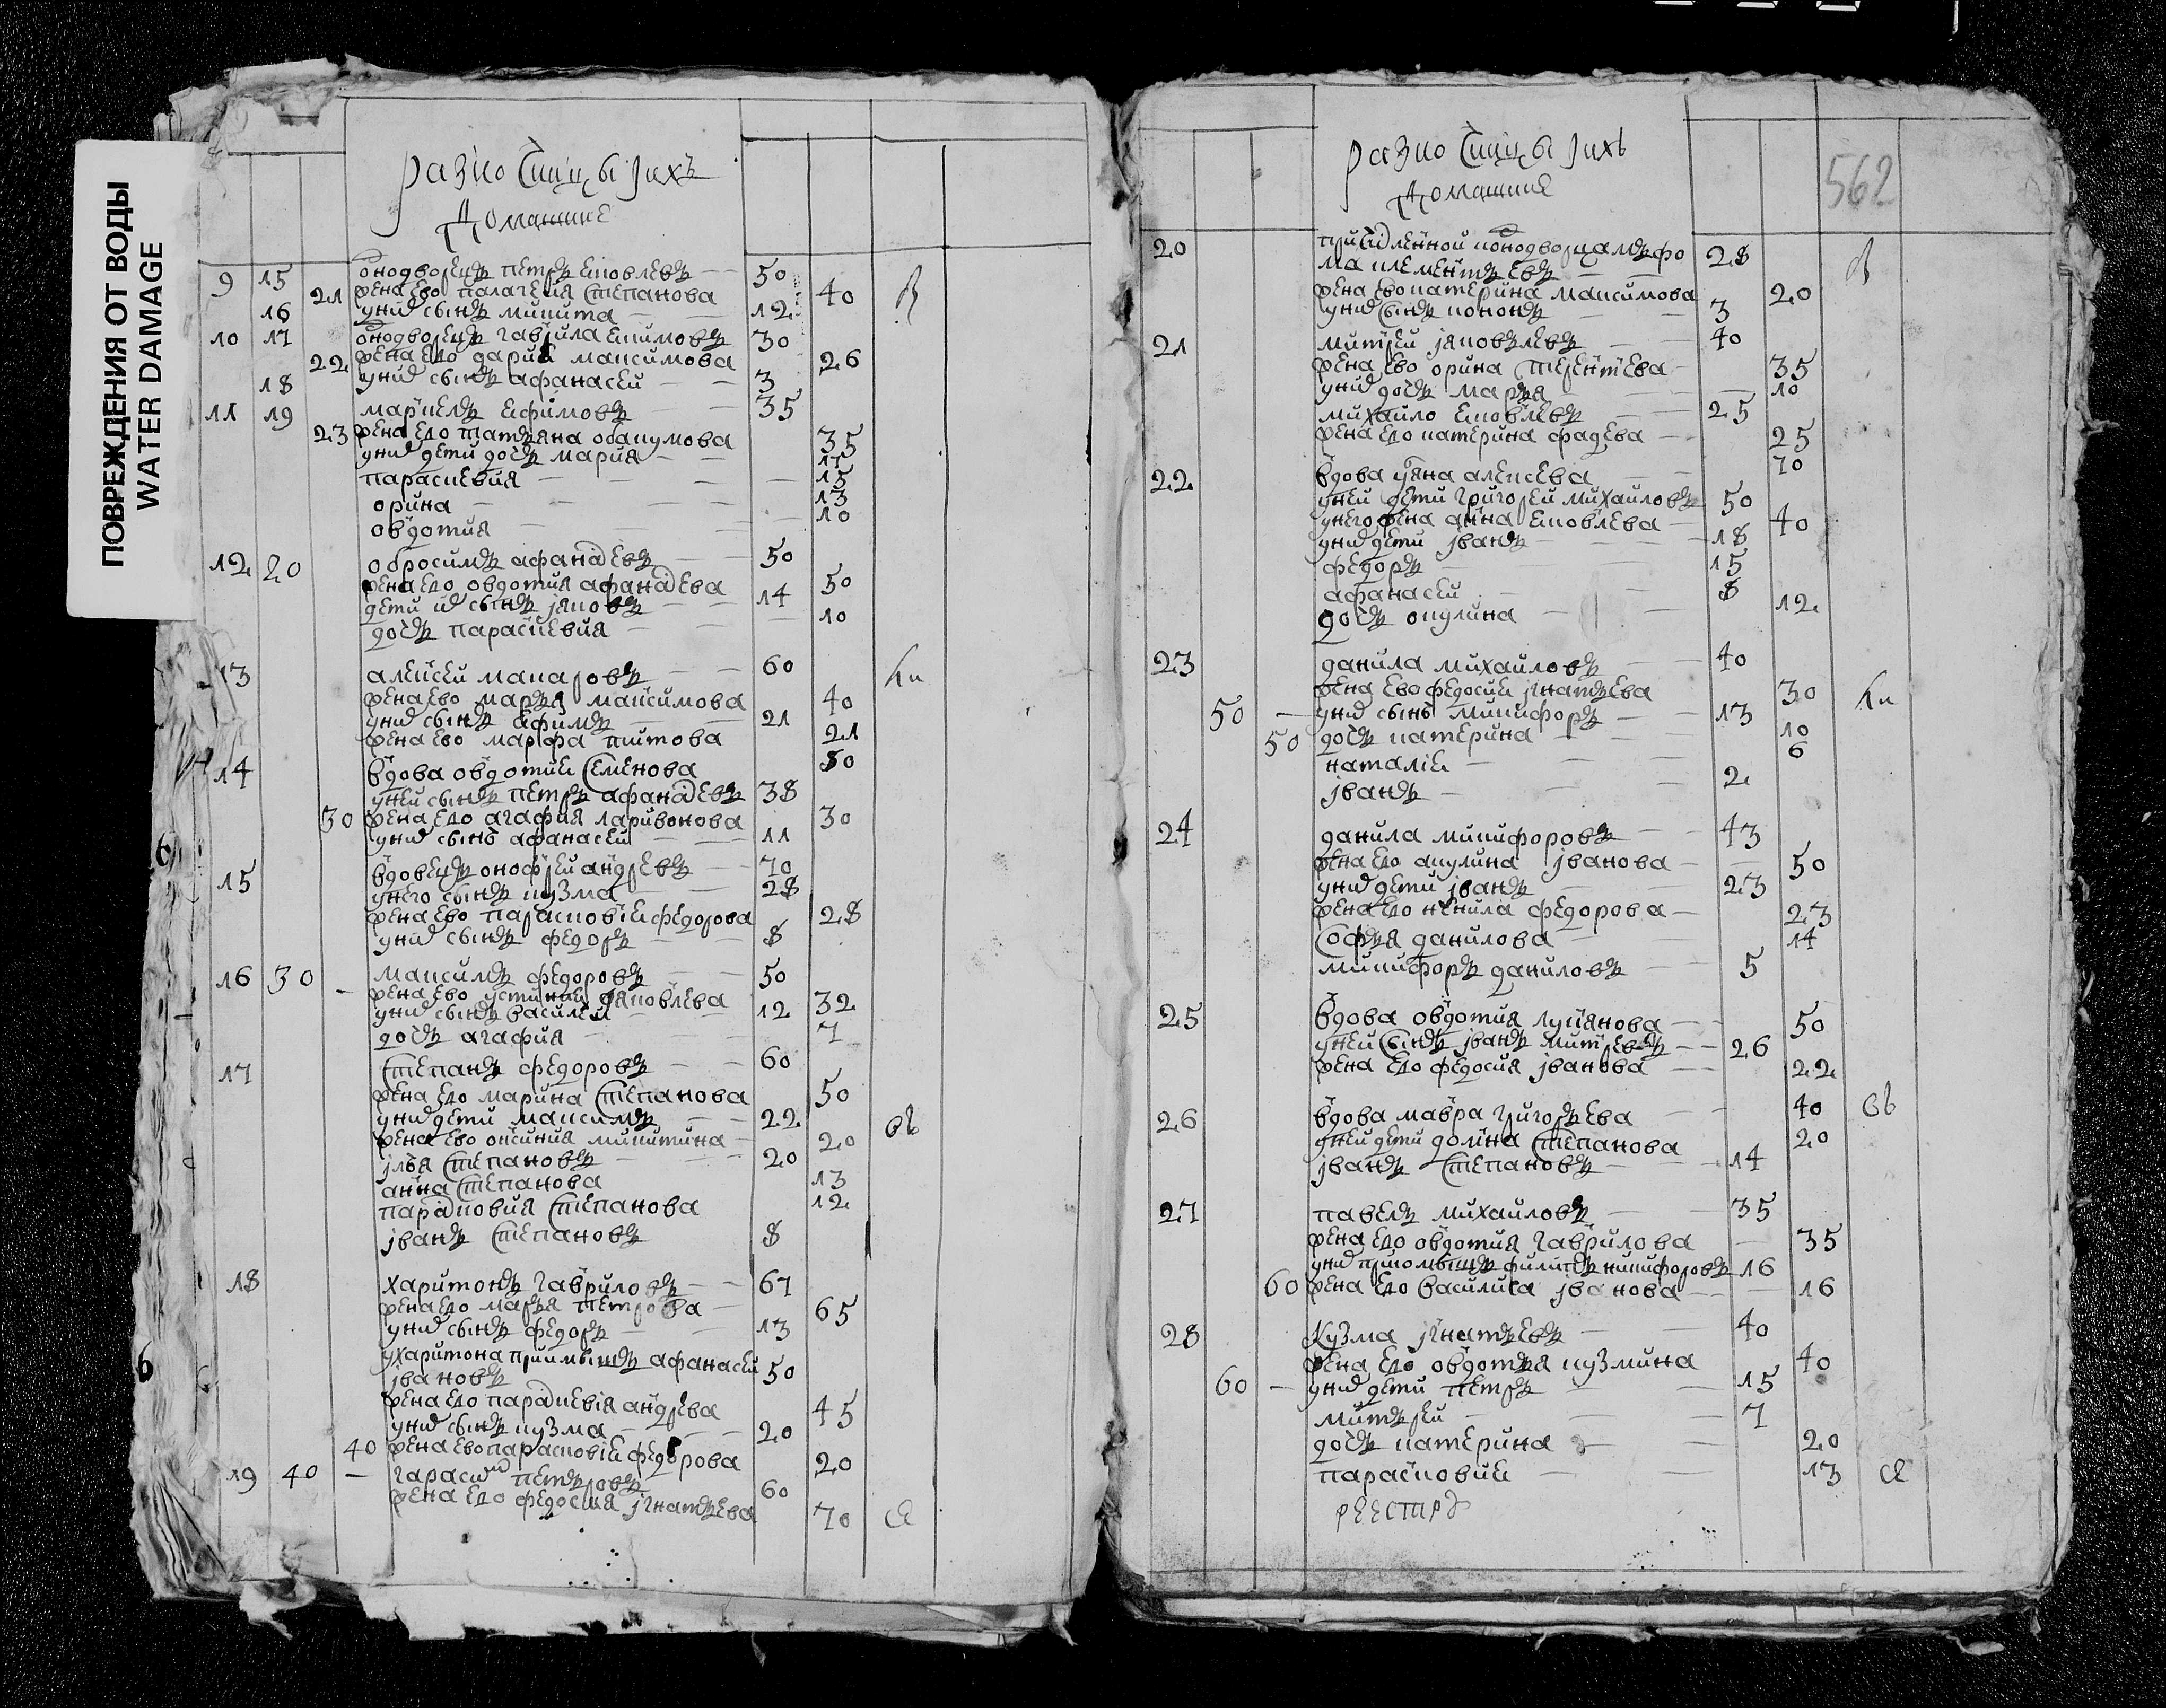 ПОВРЕЖДЕНИЯ ОТ ВОДЫ
WATER DAMAGE
разночинцы ј ихъ
домашние
9 15 онодворецъ петръ ековлевъ 50
21 жена ево палагея степанова 40
16 у них сынъ микита 12
10 17 онодворецъ гаврила екимовъ 30
22 жена ево дария максимова 26
18 у них сынъ афанасеи 3
11 19 маркелъ ефимовъ 35
23 жена ево татъяна абакумова 35
у них дети дочъ мария 17
парасkевия 15
орина 13
овдотия 10
12 20 обросимъ афанасевъ 50
жена ево овдотия афанасева 50
дети их сынъ јяковъ 14
дочъ параскевия 10
13 алексеи макаровъ 60
жена ево маръя максимова 40
у них сынъ ефимъ 21
жена ево марфа титова 21
14 вдова овдотие семенова 80
у неи сынъ петръ афанасевъ 38
30 жена ево агафия ларивонова 30
у них сынъ афанасеи 11
15 вдовецъ онофреи андреевъ 70
у него сынъ кузма 28
жена ево парасковіе федорова 28
у них сынъ федоръ 8
16 30 максимъ федоровъ 50
жена ево устиние яковлева 32
у них сынъ василеи 12
дочъ агафия 7
17 степанъ федоровъ 60
жена ево марина степанова 50
у них дети максимъ 22
жена ево оксиния микитина 20
јлъя степановъ 20
анна степанова 13
парасковия степанова 12
јванъ степановъ 8
18 харитонъ гавриловъ 67
жена ево маръя петрова 65
у них сынъ федоръ 13
у харитона приимышъ афанасеи
јвановъ 50
жена ево параскевія андрева 45
у них сынъ кузма 20
40 жена ево парасковіе федорова 20
19 40 гарасим петровъ 60
жена ево федосия јгнатъева 70
разночинцы ј ихъ
домашние
562
20 28
ма клементъевъ
жена ево катерина максимова 20
у них сынъ кононъ 3
21 митреи јяковлевъ 40
жена ево орина терентъева 35
у них дочъ маръя 10
михаило ековлевъ 25
жена ево катерина фадеева 25
22 вдова уляна алексева 70
у неи дети григореи михаиловъ 50
у него жена анна ековлева 40
у них дети јванъ 18
федоръ 15
афанасеи 8
дочъ окулина 12
23 данила михаиловъ 40
жена ево федосие јгнатъева 30
50 у них сынъ микифоръ 13
50 дочъ катерина 10
наталіе 6
јванъ 2
24 данила микифоровъ 43
жена ево акулина јванова 50
у них дети јванъ 23
жена ево ненила федорова 23
софъя данилова 14
микифоръ даниловъ 5
25 вдова овдотия лукянова 50
у неи сынъ јванъ митревъ 26
жена ево федосия јванова 22
26 вдова мавра григоръева 40
у неи дети домна степанова 20
јванъ степановъ 14
27 павелъ михаиловъ 35
жена ево овдотия гаврилова 35
у них приомышъ филипъ никифоровъ 16
60 жена ево василиса јванова 16
28 кузма јгнатъевъ 40
жена ево овдотъя кузмина 40
60 у них дети петръ 15
митреи 7
дочъ катерина 20
парасковие 13
реестръ